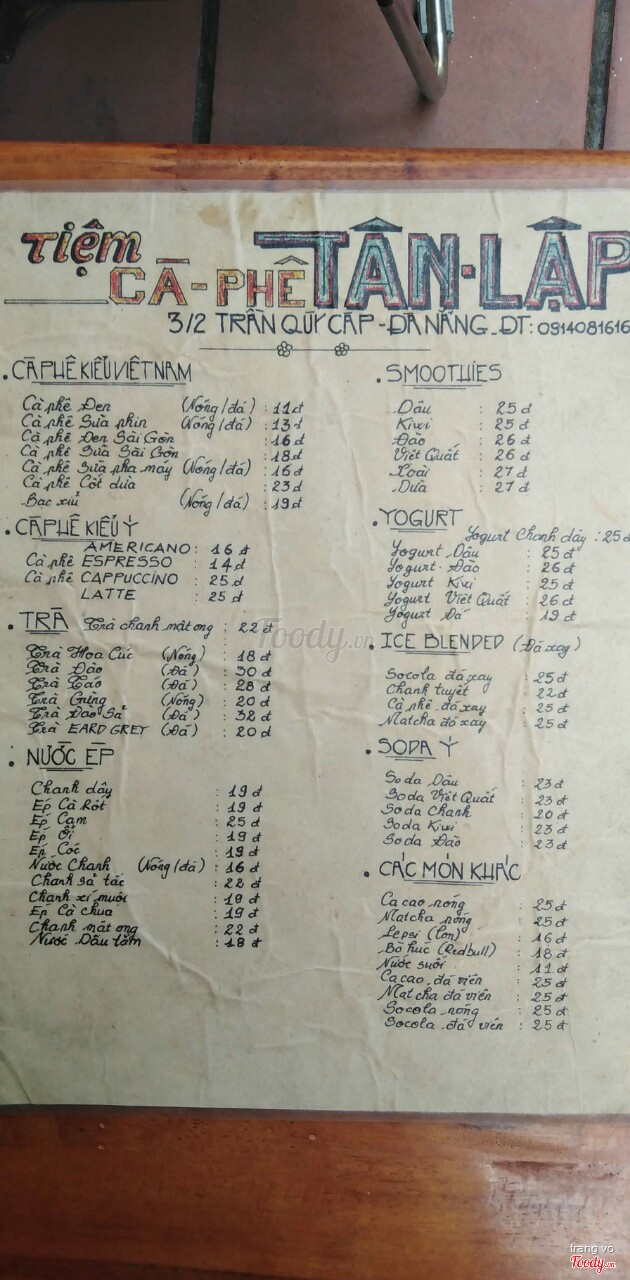 Tiệm
CÀ-PHÊ TÂN-LẬP
3/2 TRẦN QÚY CÁP - ĐÀ NẴNG - ĐT: 0914081616
. CÀ PHÊ KIỂU VIỆT NAM
Cà phê Đen (Nóng/đá) : 11đ
Cà phê Sữa phin (Nóng/đá) : 13đ
Cà phê Đen Sài Gòn : 16đ
Cà phê Sữa Sài Gòn : 18đ
Cà phê Sữa pha máy (Nóng/đá) : 16đ
Cà phê Cốt dừa : 23đ
Bạc xỉu (Nóng/đá) : 19đ
. CÀ PHÊ KIỂU Ý
AMERICANO : 16đ
Cà phê ESPRESSO : 14đ
Cà phê CAPPUCCINO : 25đ
LATTE : 25đ
. TRÀ Trà chanh mật ong : 22đ
Trà Hoa Cúc (Nóng) : 18đ
Trà Đào (Đá) : 30đ
Trà Táo (Đá) : 28đ
Trà Gừng (Nóng) : 20đ
Trà Đào Sả (Đá) : 32đ
Trà EARD GREY (Đá) : 20đ
. NƯỚC ÉP
Chanh dây : 19đ
Ép Cà Rốt : 19đ
Ép Cam : 25đ
Ép Ổi : 19đ
Ép Cóc : 19đ
Nước Chanh (Nóng/đá) : 16đ
Chanh sả tắc : 22đ
Chanh xí muội : 19đ
Ép Cà chua : 19đ
Chanh mật ong : 22đ
Nước Dâu tằm : 18đ
. SMOOTHIES
Dâu : 25đ
Kiwi : 25đ
Đào : 26đ
Việt Quất : 26đ
Xoài : 27đ
Dừa : 27đ
. YOGURT Yogurt Chanh dây : 25đ
Yogurt Dâu : 25đ
Yogurt Đào : 26đ
Yogurt Kiwi : 25đ
Yogurt Việt Quất : 26đ
Yogurt Đá : 19đ
. ICE BLENDED (Đá xay)
Socola đá xay : 25đ
Chanh tuyết : 22đ
Cà phê đá xay : 25đ
Matcha đá xay : 25đ
. SODA Ý
Soda Dâu : 23đ
Soda Việt Quất : 23đ
Soda Chanh : 20đ
Soda Kiwi : 23đ
Soda Đào : 23đ
. CÁC MÓN KHÁC
Ca cao nóng : 25đ
Matcha nóng : 25đ
Pepsi (lon) : 16đ
Bò húc (Redbull) : 18đ
Nước suối : 11đ
Ca cao đá viên : 25đ
Matcha đá viên : 25đ
Socola nóng : 25đ
Socola đá viên : 25đ
Foody.vn
trang vo
Foody.vn